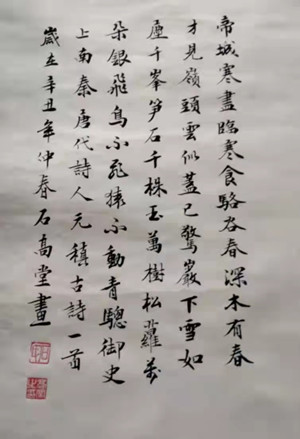 帝城寒盡臨寒食駱谷春深未有春
才見嶺頭雲似蓋已驚巖下雪如
塵千峯笋石千株玉萬樹松蘿萬
朵銀飛鳥不飛猿不動青驄御史
上南秦唐代詩人元稹古詩一首
歲在辛丑年仲春石高堂畫